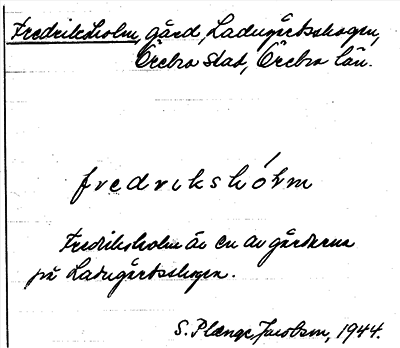 Fredriksholm, gård, Ladugårdsskogen,
Örebro stad, Örebro län.
fredrikshólm
Fredriksholm är en av gårdarna
på Ladugårdsskogen.
S. Plænge Jacobson, 1944.